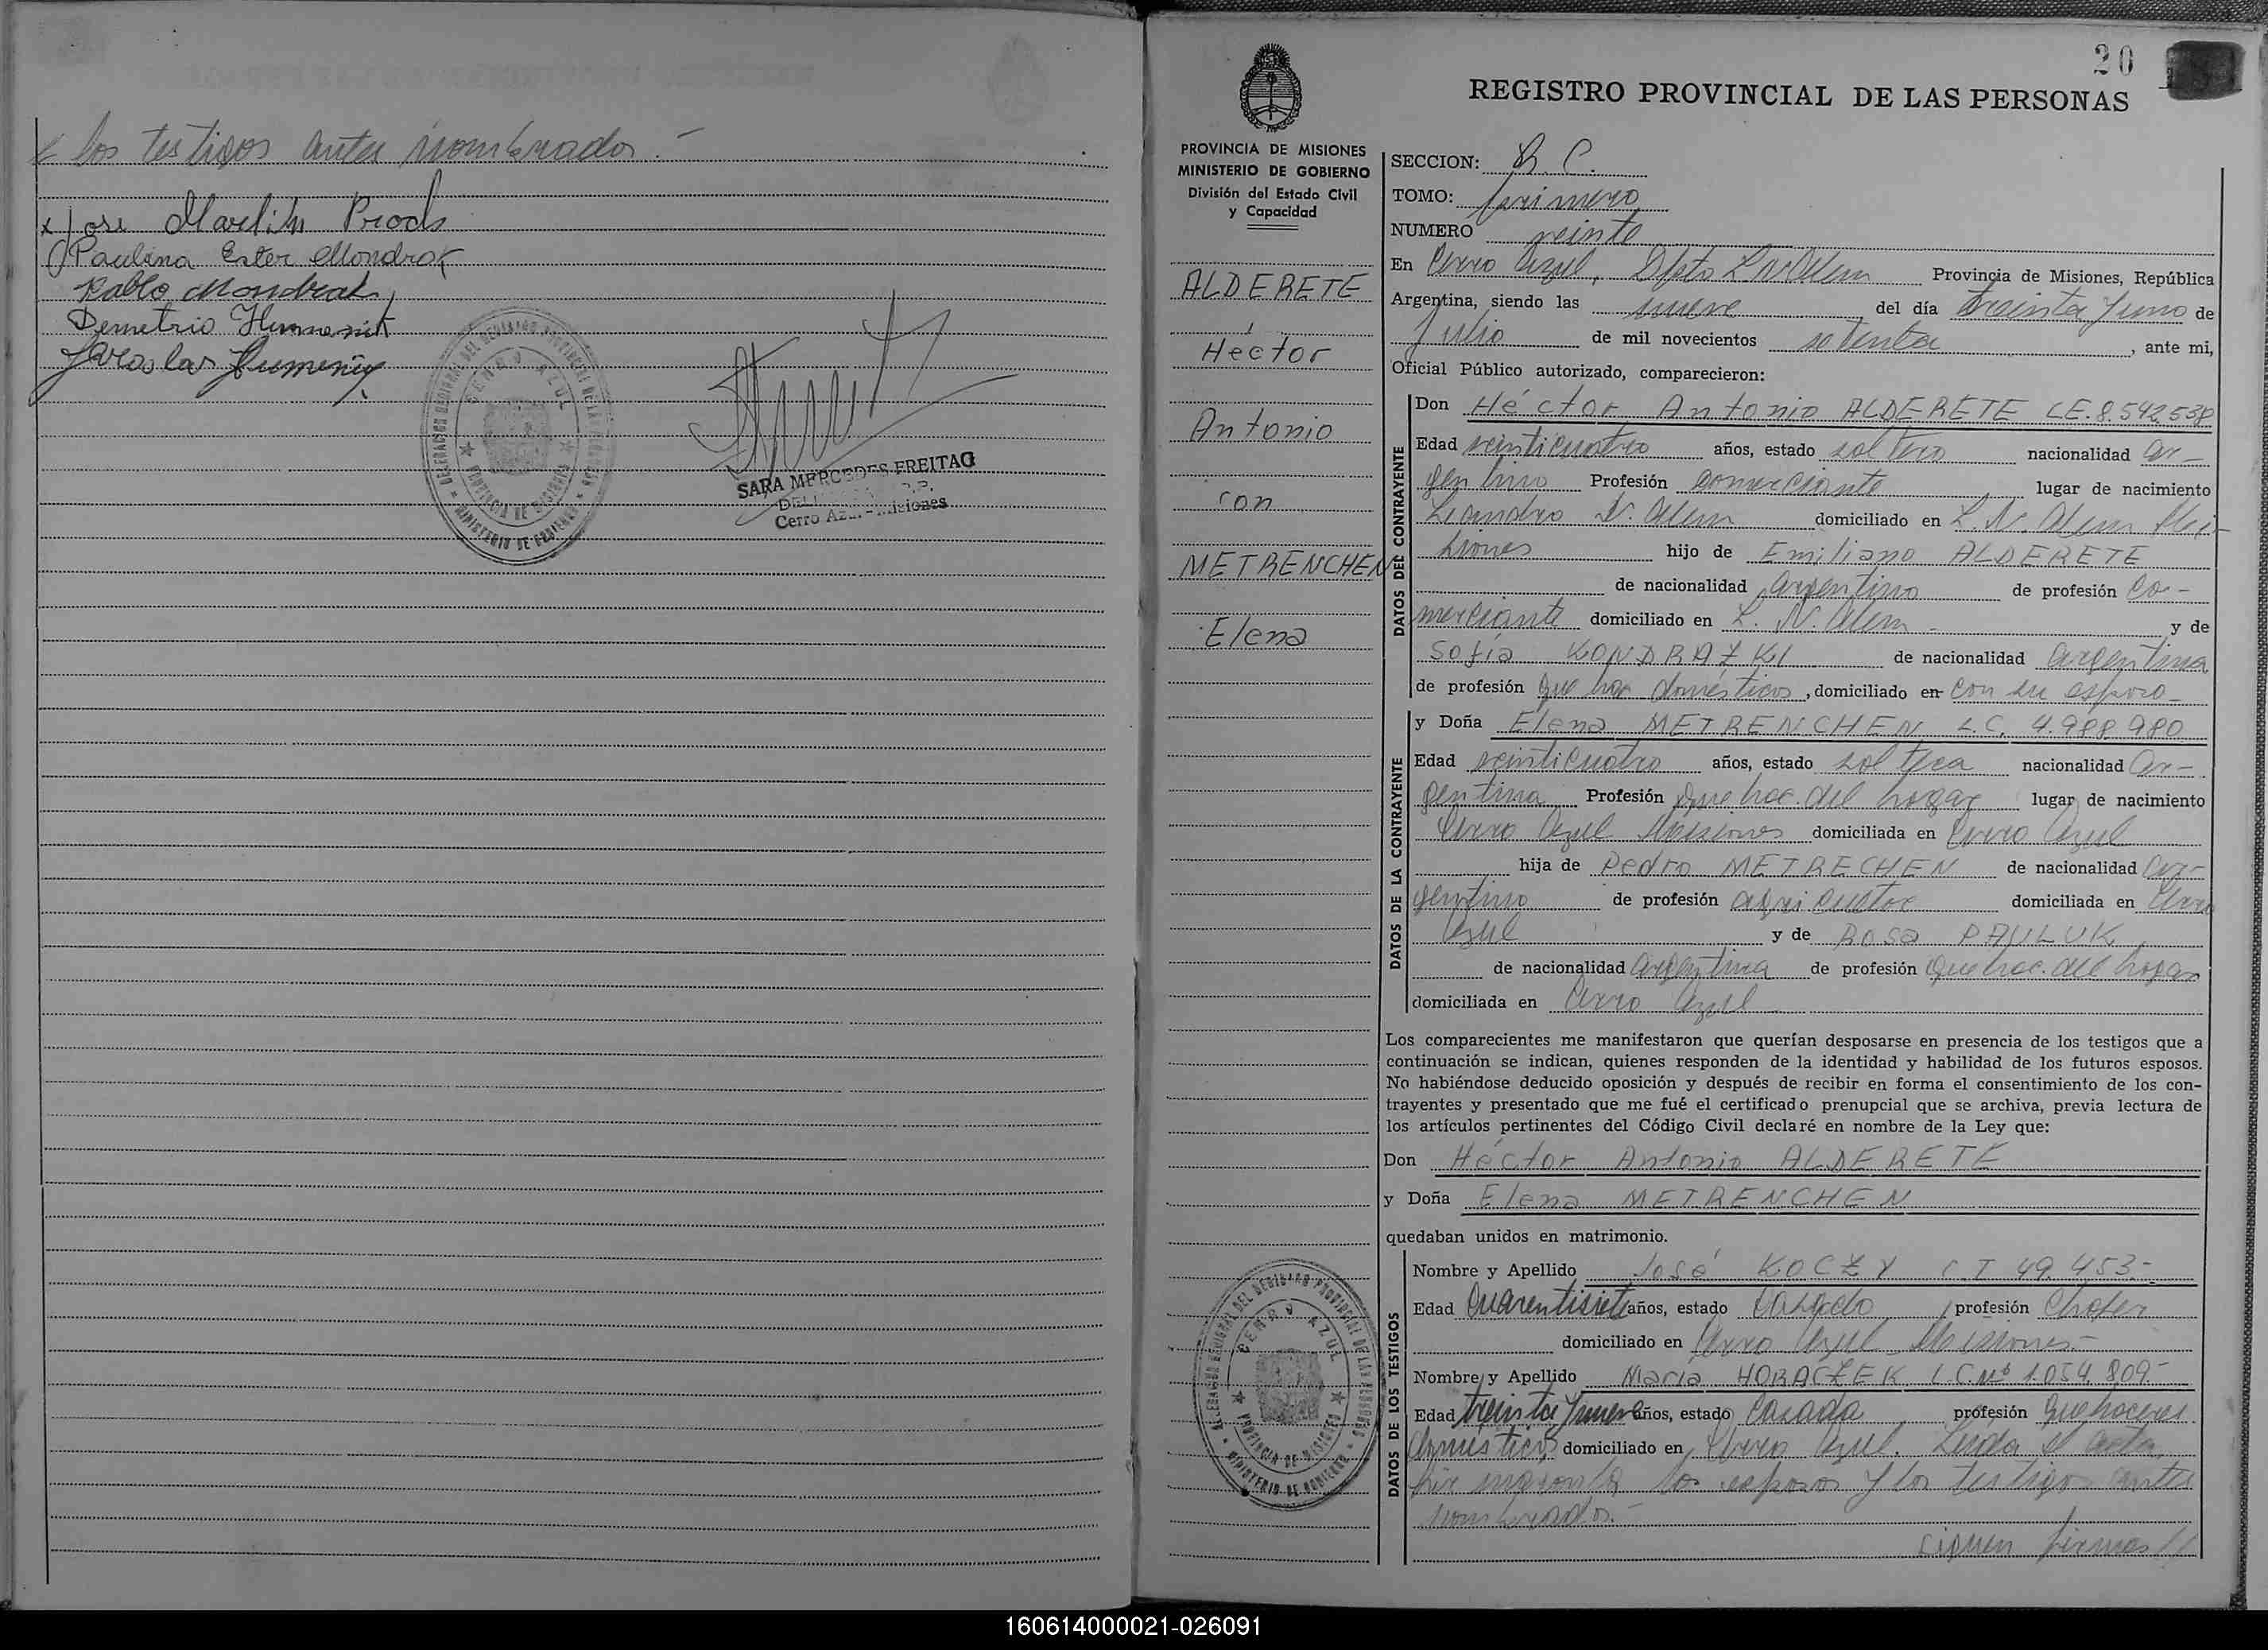 los testigos antes nombrados.-
x Jose
Paulina Ester Mondrak
Pablo Mondrak
Demetrio
DELEGACION REGIONAL DEL REGISTRO PROVINCIAL DE LAS PERSONAS
CERRO AZUL
PROVINCIA DE MISIONES
MINISTERIO DE GOBIERNO
SARA MERCEDES FREITAG
Cerro Azul - Misiones
20
REGISTRO PROVINCIAL DE LAS PERSONAS
PROVINCIA DE MISIONES
MINISTERIO DE GOBIERNO
División del Estado Civil
y Capacidad
ALDERETE
Héctor
Antonio
con
METRENCHEN
Elena
SECCION: R. C.
TOMO: primero
NUMERO veinte
En Cerro Azul, Dpto L.N. Alem Provincia de Misiones, República
Argentina, siendo las nueve del día treinta y uno de
Julio de mil novecientos setenta, ante mi,
Oficial Público autorizado, comparecieron:
DATOS DEL CONTRAYENTE
Don Héctor Antonio ALDERETE L.E. 8.542.538
Edad veinticuatro años, estado soltero nacionalidad ar-
gentino Profesión comerciante lugar de nacimiento
Leandro N. Alem domiciliado en L. N. Alem Mi-
siones hijo de Emiliano ALDERETE
de nacionalidad argentino de profesión co-
merciante domiciliado en L. N. Alem - y de
Sofía KONDRAZKI de nacionalidad argentina
de profesión que hac domésticos, domiciliado en con su esposo-
DATOS DE LA CONTRAYENTE
y Doña Elena METRENCHEN L.C. 4.988.980
Edad veinticuatro años, estado soltera nacionalidad ar-
gentina Profesión que hac. del hogar lugar de nacimiento
Cerro Azul Misiones domiciliada en Cerro Azul
hija de Pedro METRECHEN de nacionalidad ar-
gentino de profesión agricultor domiciliada en Cerro
Azul y de Rosa PAULUK
de nacionalidad argentina de profesión que hac. del hogar
domiciliada en Cerro Azul
Los comparecientes me manifestaron que querían desposarse en presencia de los testigos que a
continuación se indican, quienes responden de la identidad y habilidad de los futuros esposos.
No habiéndose deducido oposición y después de recibir en forma el consentimiento de los con-
trayentes y presentado que me fué el certificado prenupcial que se archiva, previa lectura de
los artículos pertinentes del Código Civil declaré en nombre de la Ley que:
Don Héctor Antonio ALDERETE
y Doña Elena METRENCHEN
quedaban unidos en matrimonio.
DATOS DE LOS TESTIGOS
Nombre y Apellido José KOCZY C.I 49.453.-
Edad Cuarentisiete años, estado Casado profesión Chofer
domiciliado en Cerro Azul Misiones-
Nombre y Apellido María HORACZEK L.C. Nº 1.054.809-
Edad treinta y nueve años, estado Casada profesión Quehaceres
domésticos domiciliado en Cerro Azul. Leída el acta,
los esposos y los testigos antes
nombrados.-
siguen firmas //
DELEGACION REGIONAL DEL REGISTRO PROVINCIAL DE LAS PERSONAS
CERRO AZUL
PROVINCIA DE MISIONES
MINISTERIO DE GOBIERNO
160614000021-026091